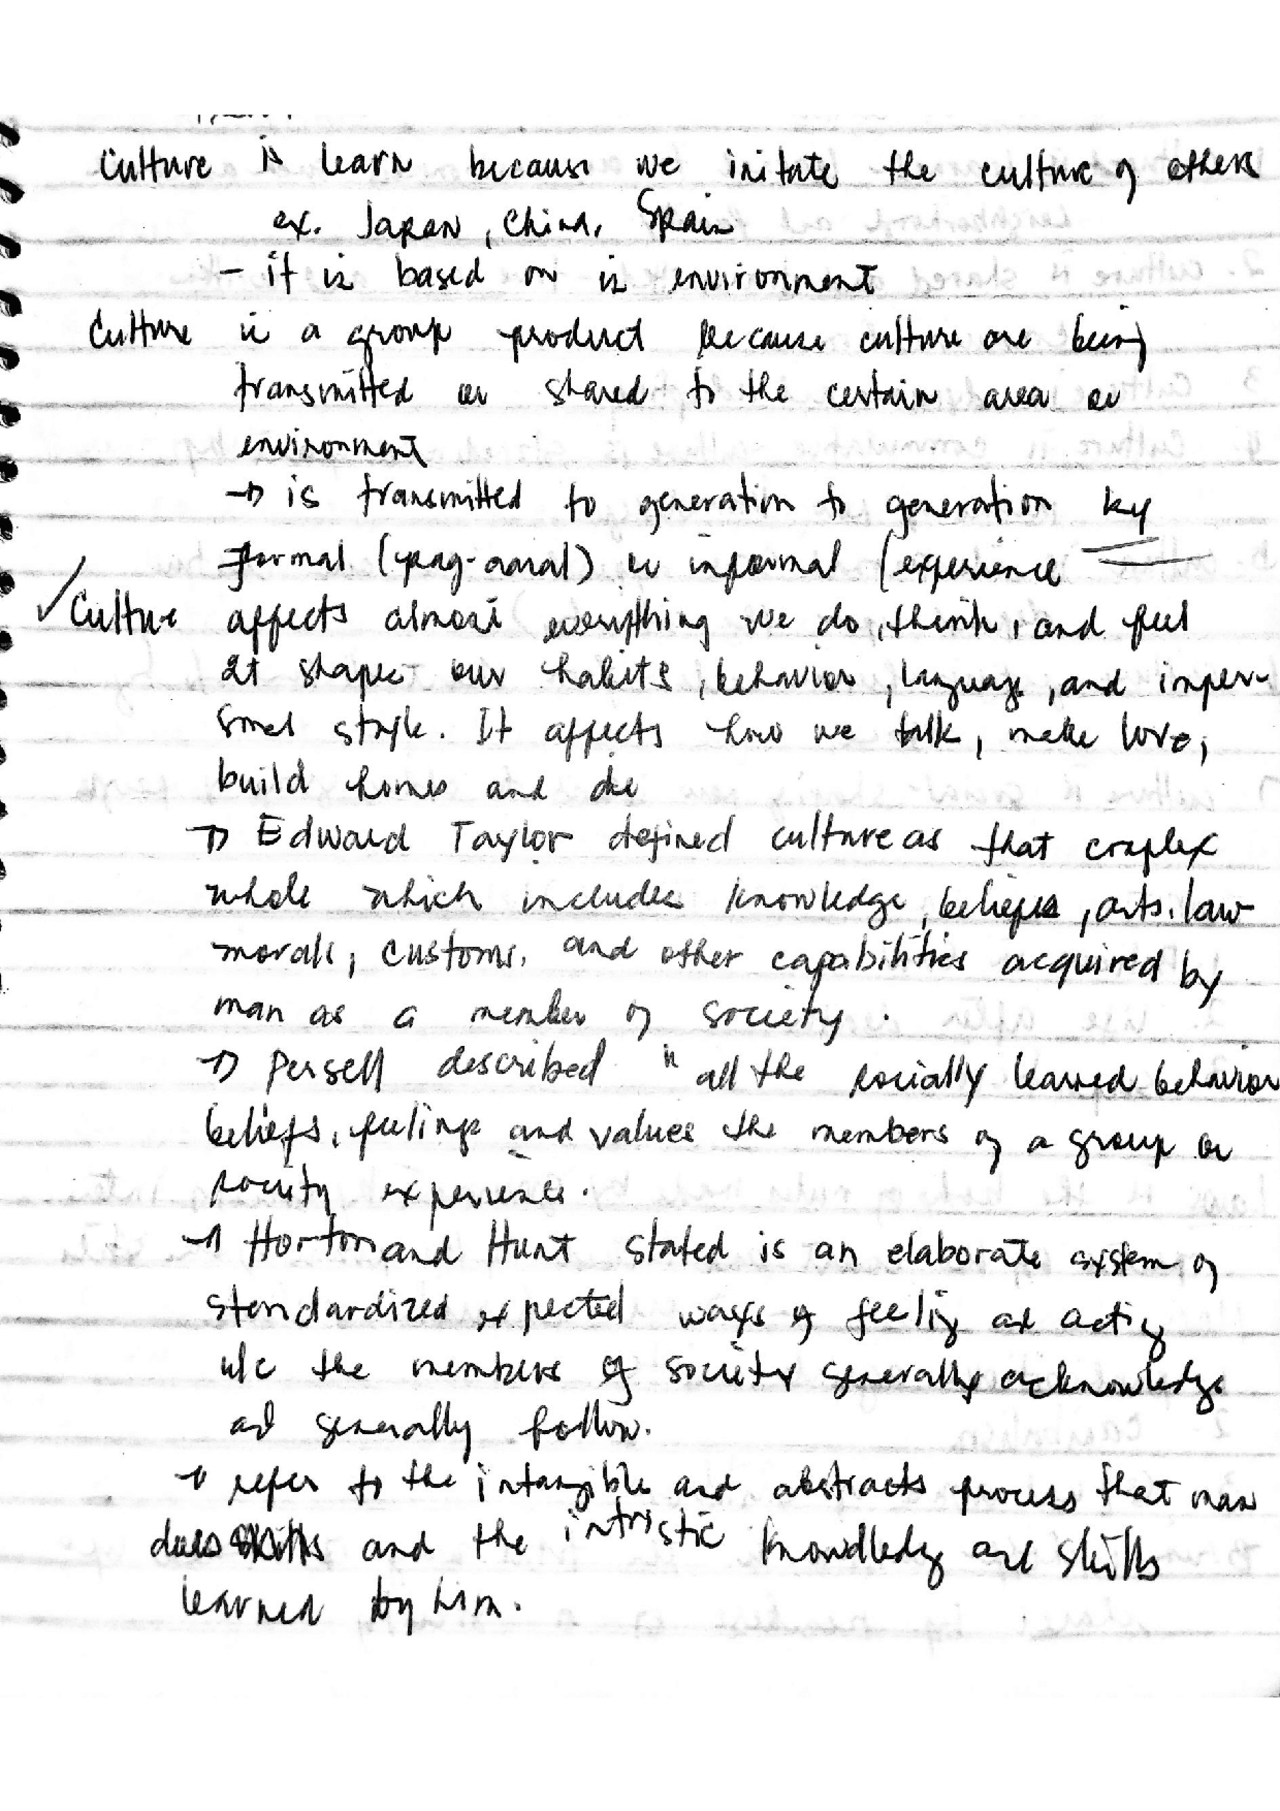 Culture is learn because we imitate the culture of others
ex. Japan, China, Spain
- it is based on is environment
Culture is a group product because culture are being
transmitted or shared to the certain area or
environment
→ is transmitted to generation to generation by
formal (pag-aaral) or informal (experience
✓ Culture affects almost everything we do, think, and feel
It shape our habits, behavior, language, and imper-
sonal style. It affects how we talk, make love,
build homes and die
→ Edward Taylor defined culture as that complex
whole which includes knowledge, beliefs, arts, law
morals, customs, and other capabilities acquired by
man as a member of society.
→ Persell described " all the socially learned behavior
beliefs, feelings and values the members of a group or
society experiences.
→ Horton and Hunt stated is an elaborate system of
standardized expected ways of feeling and acting
w/c the members of society generally acknowledge
and generally follow.
→ refer to the intangible and abstracts process that man
does and the intristic knowdledge and skills
learned by him.